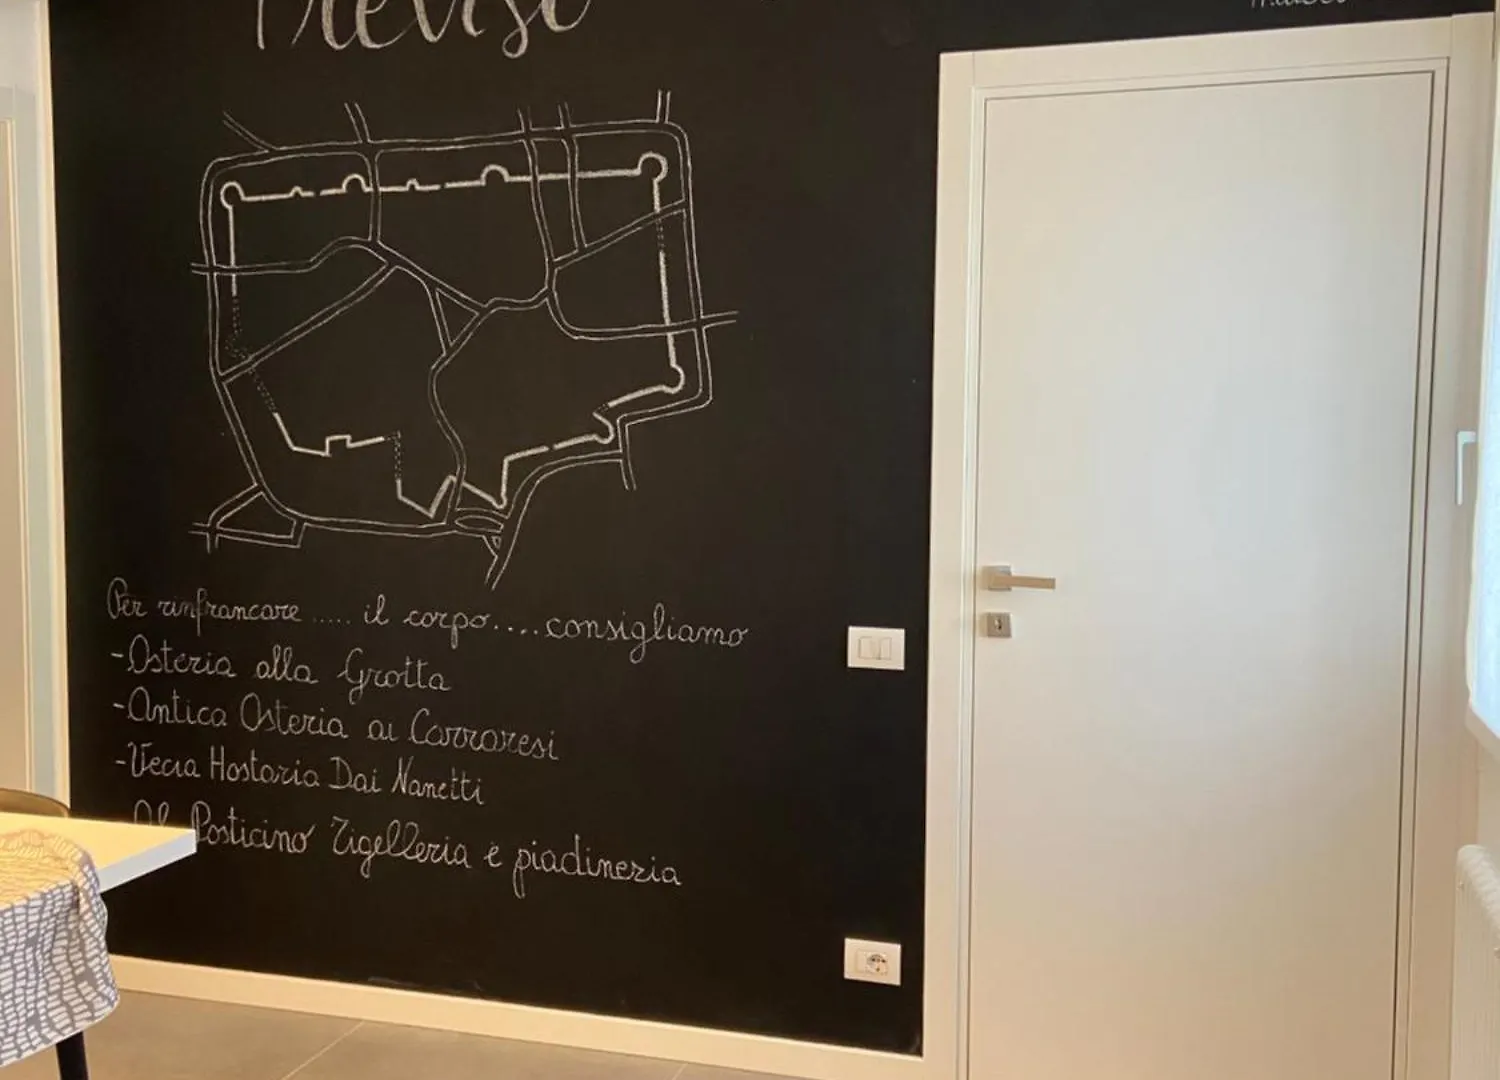 Treviso
Per rinfrancare ..... il corpo.... consigliamo
-Osteria alla Grotta
-Antica Osteria ai Carraresi
-Vecia Hostaria Dai Nanetti
Al Posticino Tigelleria e piadineria